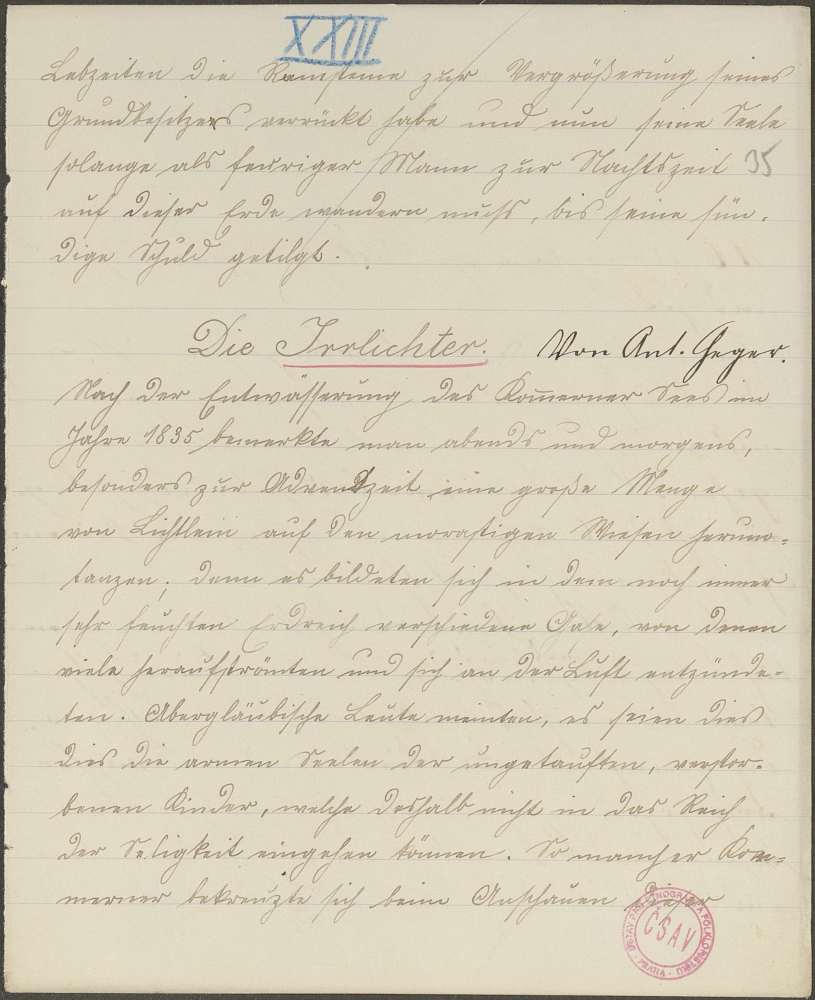 XXIII
Lebzeiten die Rainsteine zur Vergrößerung seines
Grundbesitzes verrückt habe und nun seine Seele
solange als feuriger Mann zur Nachtszeit 35
auf dieser Erde wandern muß, bis seine sün-
dige Schuld getilgt.
Die Irrlichter. Von Ant. Geger.
Nach der Entwässerung des Kom̅erner Sees im
Jahre 1835 bemerkte man abends und morgens,
besonders zur Adventzeit eine große Menge
von Lichtlein auf den morastigen Wiesen herum-
tanzen; denn es bildeten sich in dem noch immer
sehr feuchten Erdreich verschiedene Gase, von denen
viele heraufströmten und sich an der Luft entzünde-
ten. Abergläubische Leute meinten, es seien dies
dies die armen Seelen der ungetauften, verstor-
benen Kinder, welche deshalb nicht in das Reich
der Seligkeit eingehen können. So mancher Kom-
merner bekreuzte sich beim Anschauen dieser
ČSAV